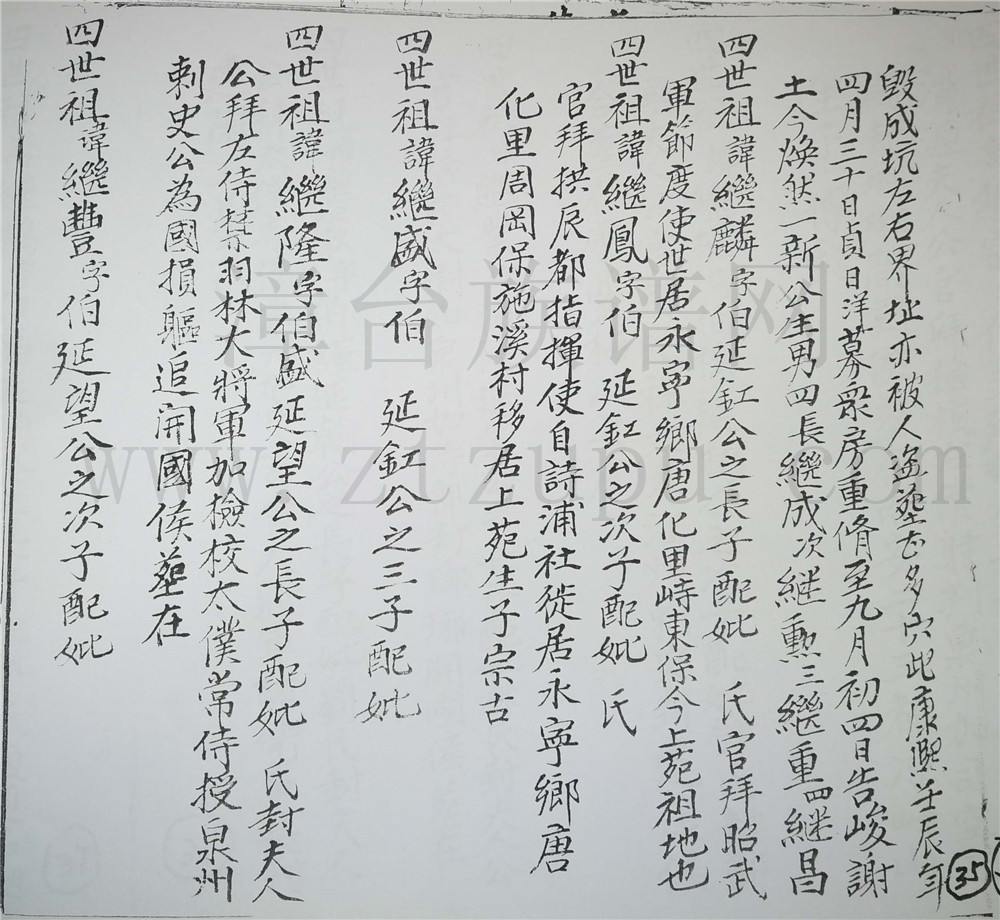 毀成坑左右界址亦被人盜塟甚多穴此康熙壬辰年
四月三十日貞日洋募眾房重脩至九月初四日告峻謝
土今煥然一新公生男四長繼成次継勲三繼重四継昌
四世祖諱繼麟字伯 延釭公之長子配妣 氏官拜昭武
軍節度使世居永寧鄉唐化里峙東保今上苑祖地也
四世祖諱繼鳳字伯 延釭公之次子配妣 氏
官拜拱辰都指揮使自詩浦社徙居永寧鄉唐
化里周岡保施溪村移居上苑生子宗古
四世祖諱繼盛字伯 延釭公之三子配妣
四世祖諱繼隆字伯盛延望公之長子配妣 氏封夫人
公拜左侍禁羽林大將軍加檢校太僕常侍授泉州
刺史公為國損軀追開國侯塟在
四世祖諱繼豐字伯 延望公之次子配妣
35
漳台族谱网
www.ztzupu.com